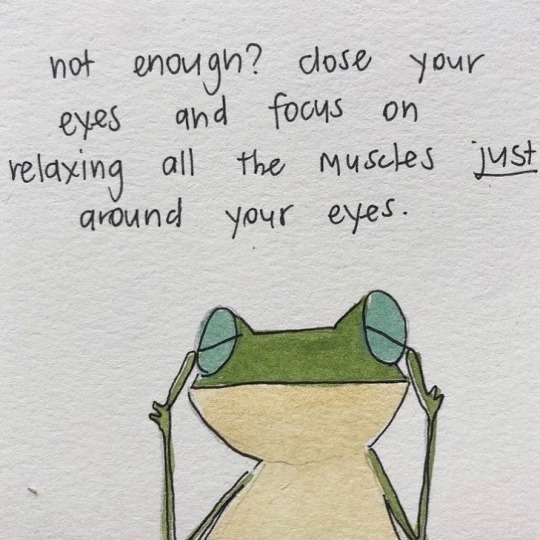 not enough? close your
eyes and focus on
relaxing all the muscles just
around your eyes.